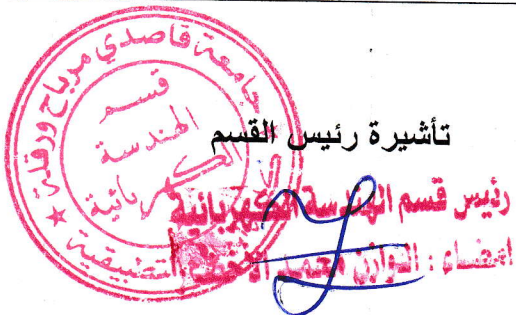 جامعة قاصدي مرباح ورقلة
قسم
الهندسة
الكهربائية
التطبيقية
تأشيرة رئيس القسم
رئيس قسم الهندسة الكهربائية
امضاء : محمد